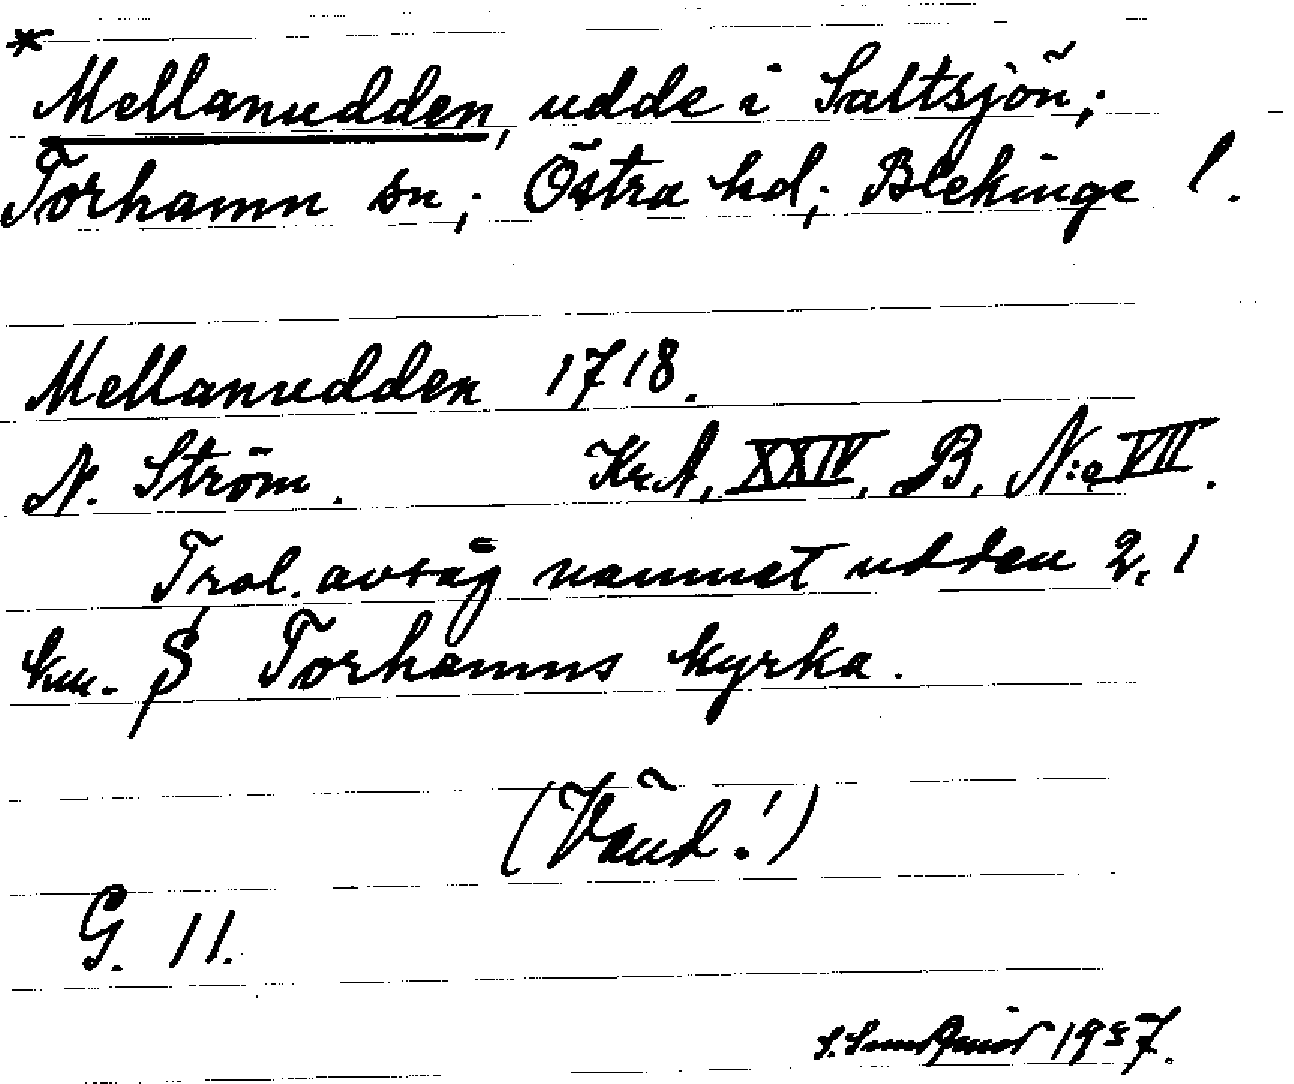 * Mellanudden, udde i Saltsjön;
Torhamn sn; Östra hd; Blekinge l.
Mellanudden 1718.
N. Ström. Kr.A, XXIV, B, N:o VII.
Trol. avsåg namnet udden 2,1
km. S Torhamns kyrka.
(Vänd!)
G. 11.
1957.